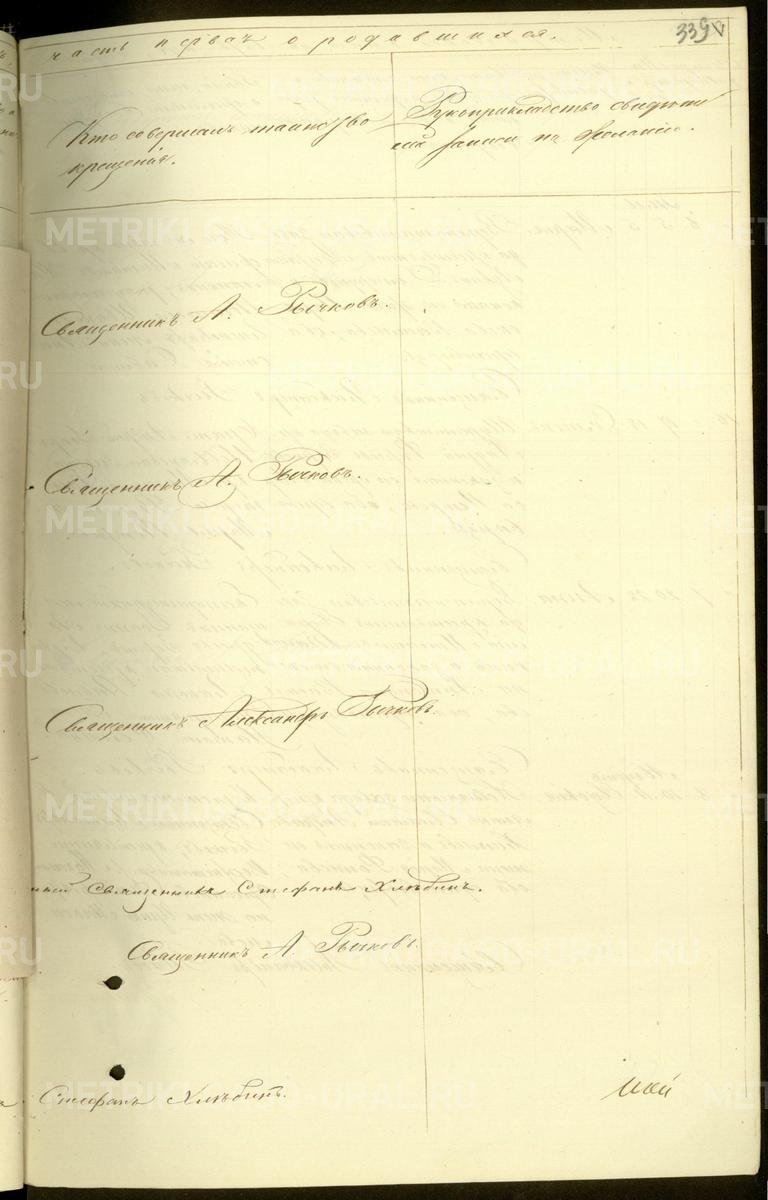 часть первая о родившихся.
339
Кто совершалъ таинство
крещенія.
Рукоприкладство свидѣте
лей записи по желанію.
Священникъ А. Рычковъ.
Священникъ А. Рычковъ.
Священникъ Александръ Рычковъ.
Священникъ Стефанъ Хлѣбинъ.
Священникъ А. Рычковъ.
Стефанъ Хлѣбинъ.
METRIKI.GASO-URAL.RU